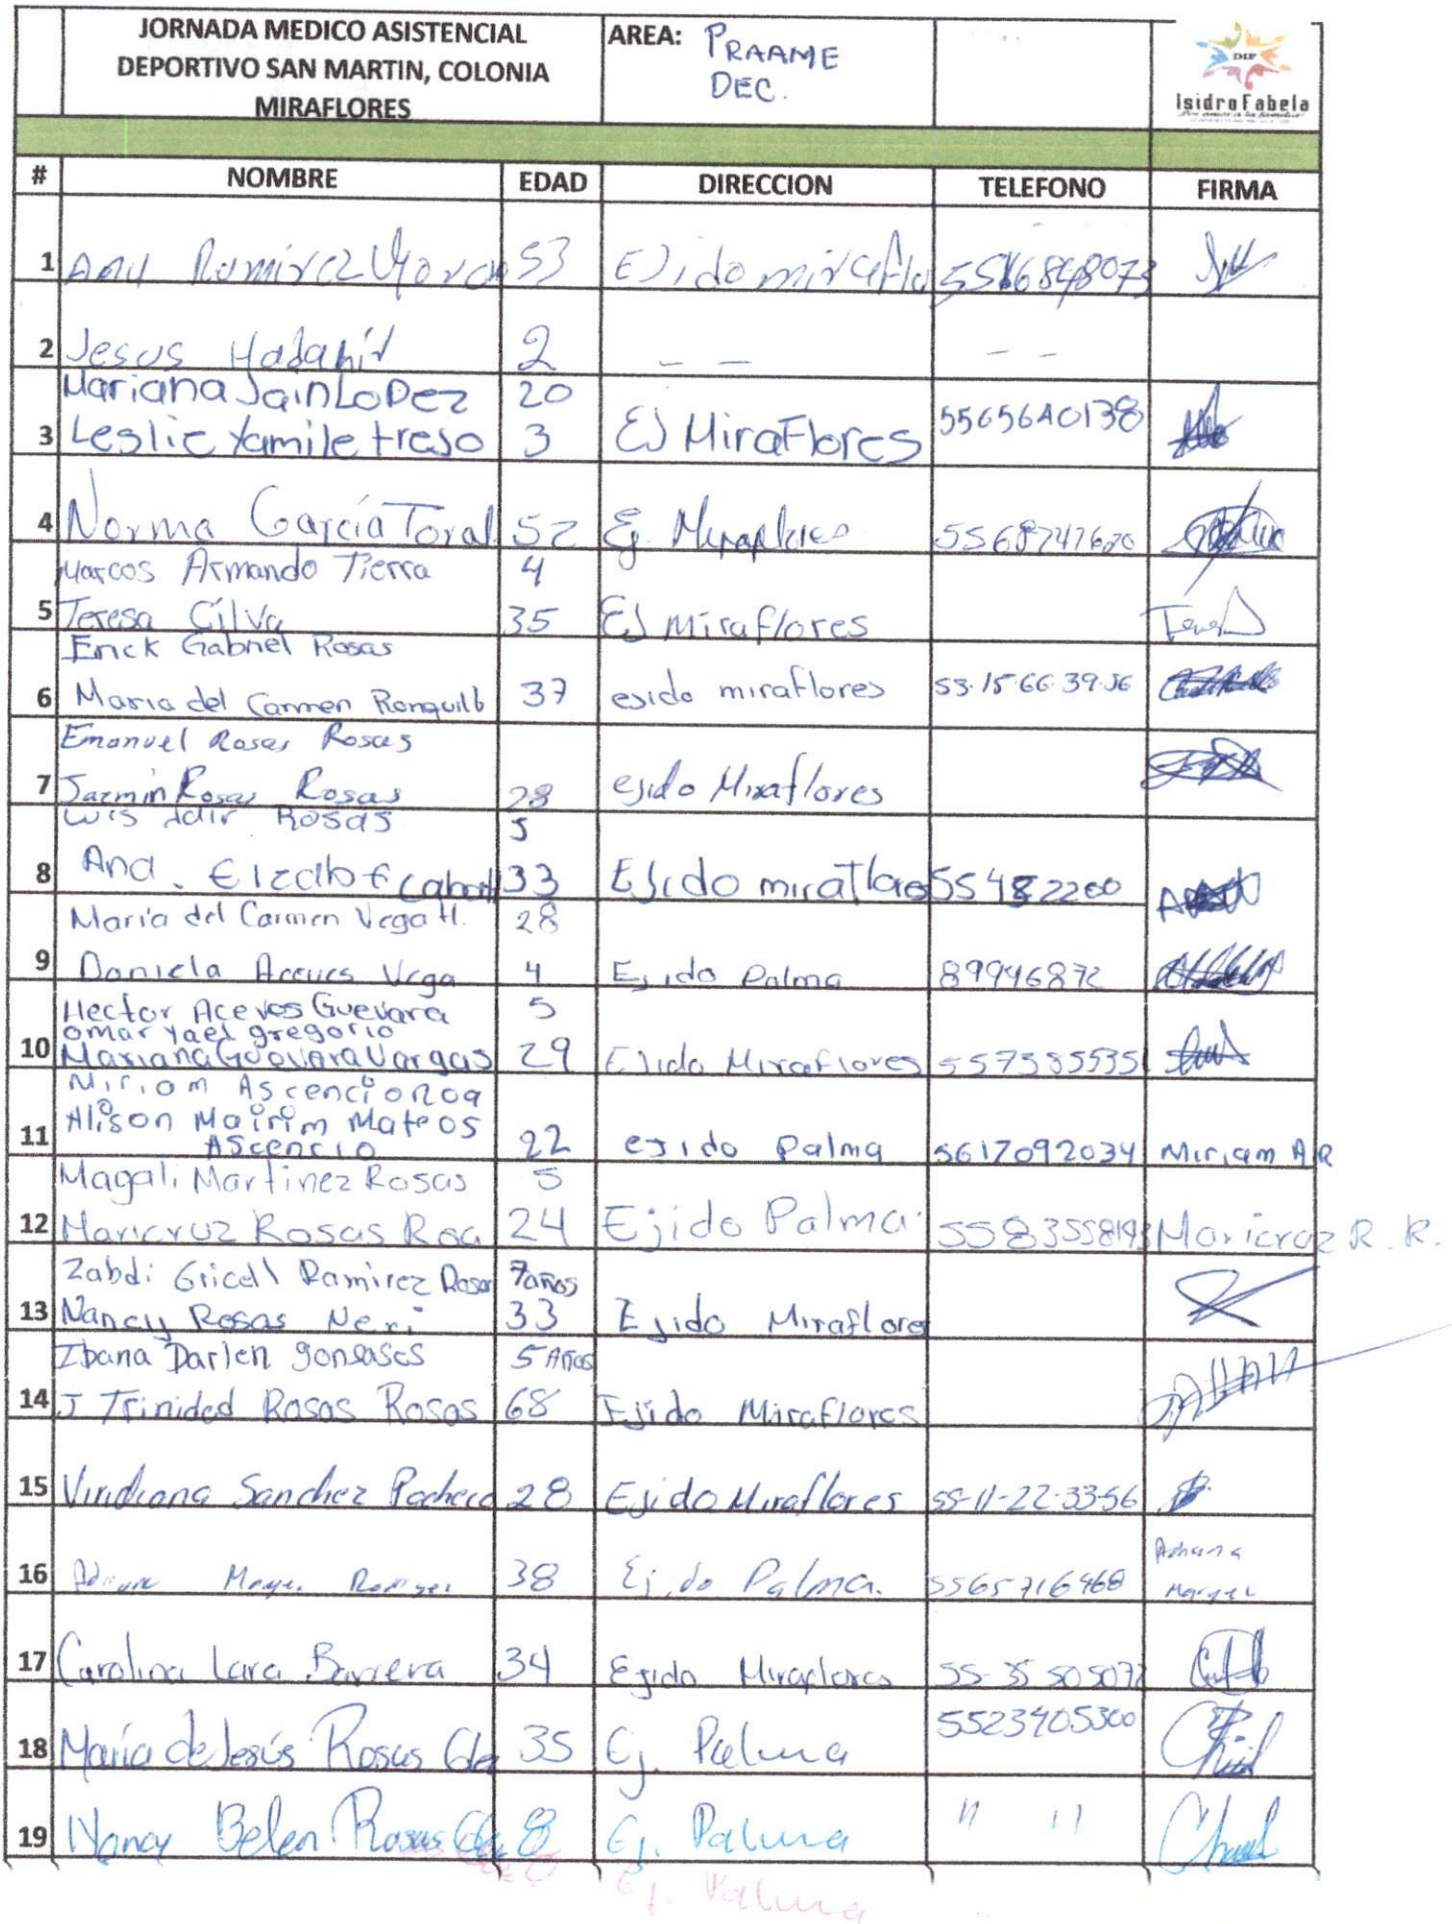 JORNADA MEDICO ASISTENCIAL
DEPORTIVO SAN MARTIN, COLONIA
MIRAFLORES
AREA: PRAAME
DEC.
DIF
Isidro Fabela
# NOMBRE EDAD DIRECCION TELEFONO FIRMA
1 Ramirez 53 Ejido miraflo
2 Jesus 2 - - - -
Mariana Jain Lopez 20
3 Leslie Yamile treJo 3 EJ MiraFlores 55656A0138
4 Norma García Toral 52 Ej. Miraflores 5568747620
Marcos Armando Tierra 4
5 Teresa Cilva 35 EJ Miraflores
Erick Gabriel Rosas
6 Maria del Carmen Ronquillo 37 esido miraflores 55-15-66-39-56
Emanuel Rosas Rosas
7 Jazmin Rosas Rosas 28 ejido Miraflores
Luis Jair Rosas 5
8 Ana. 33 EJido miraflores 55482200
María del Carmen Vega H. 28
9 Daniela Aceves Vega 4 Ejido Palma 89946872
Hector Aceves Guevara 5
omar Yael gregorio
10 Mariana Guevara Vargas 29 EJido Miraflores 557585535
Miriam Ascencio Roa
Alison Mairim Mateos
11 Ascencio 22 eJido Palma 5617092034 Miriam A R
Magali Martinez Rosas 5
12 Maricruz Rosas Roa 24 Ejido Palma. Maricruz R. R.
Zabdi Gricell Ramirez Rosas 7 años
13 Nancy Rosas Neri 33 Ejido Miraflores
Ibana Darlen gonsases 5 Años
14 J Trinidad Rosas Rosas 68 Ejido Miraflores
15 Viridiana Sanchez Pacheco 28 Ejido Miraflores 55-11-22-33-56
16 38 Ejido Palma. 5565716468
17 Carolina Lara Barrera 34 Ejido Miraflores 55-35 505072
18 María de Jesús Rosas 35 Ej. Palma 5523405300
19 Nancy Belen Rosas 8 Ej. Palma 11 11
Ej. Palma